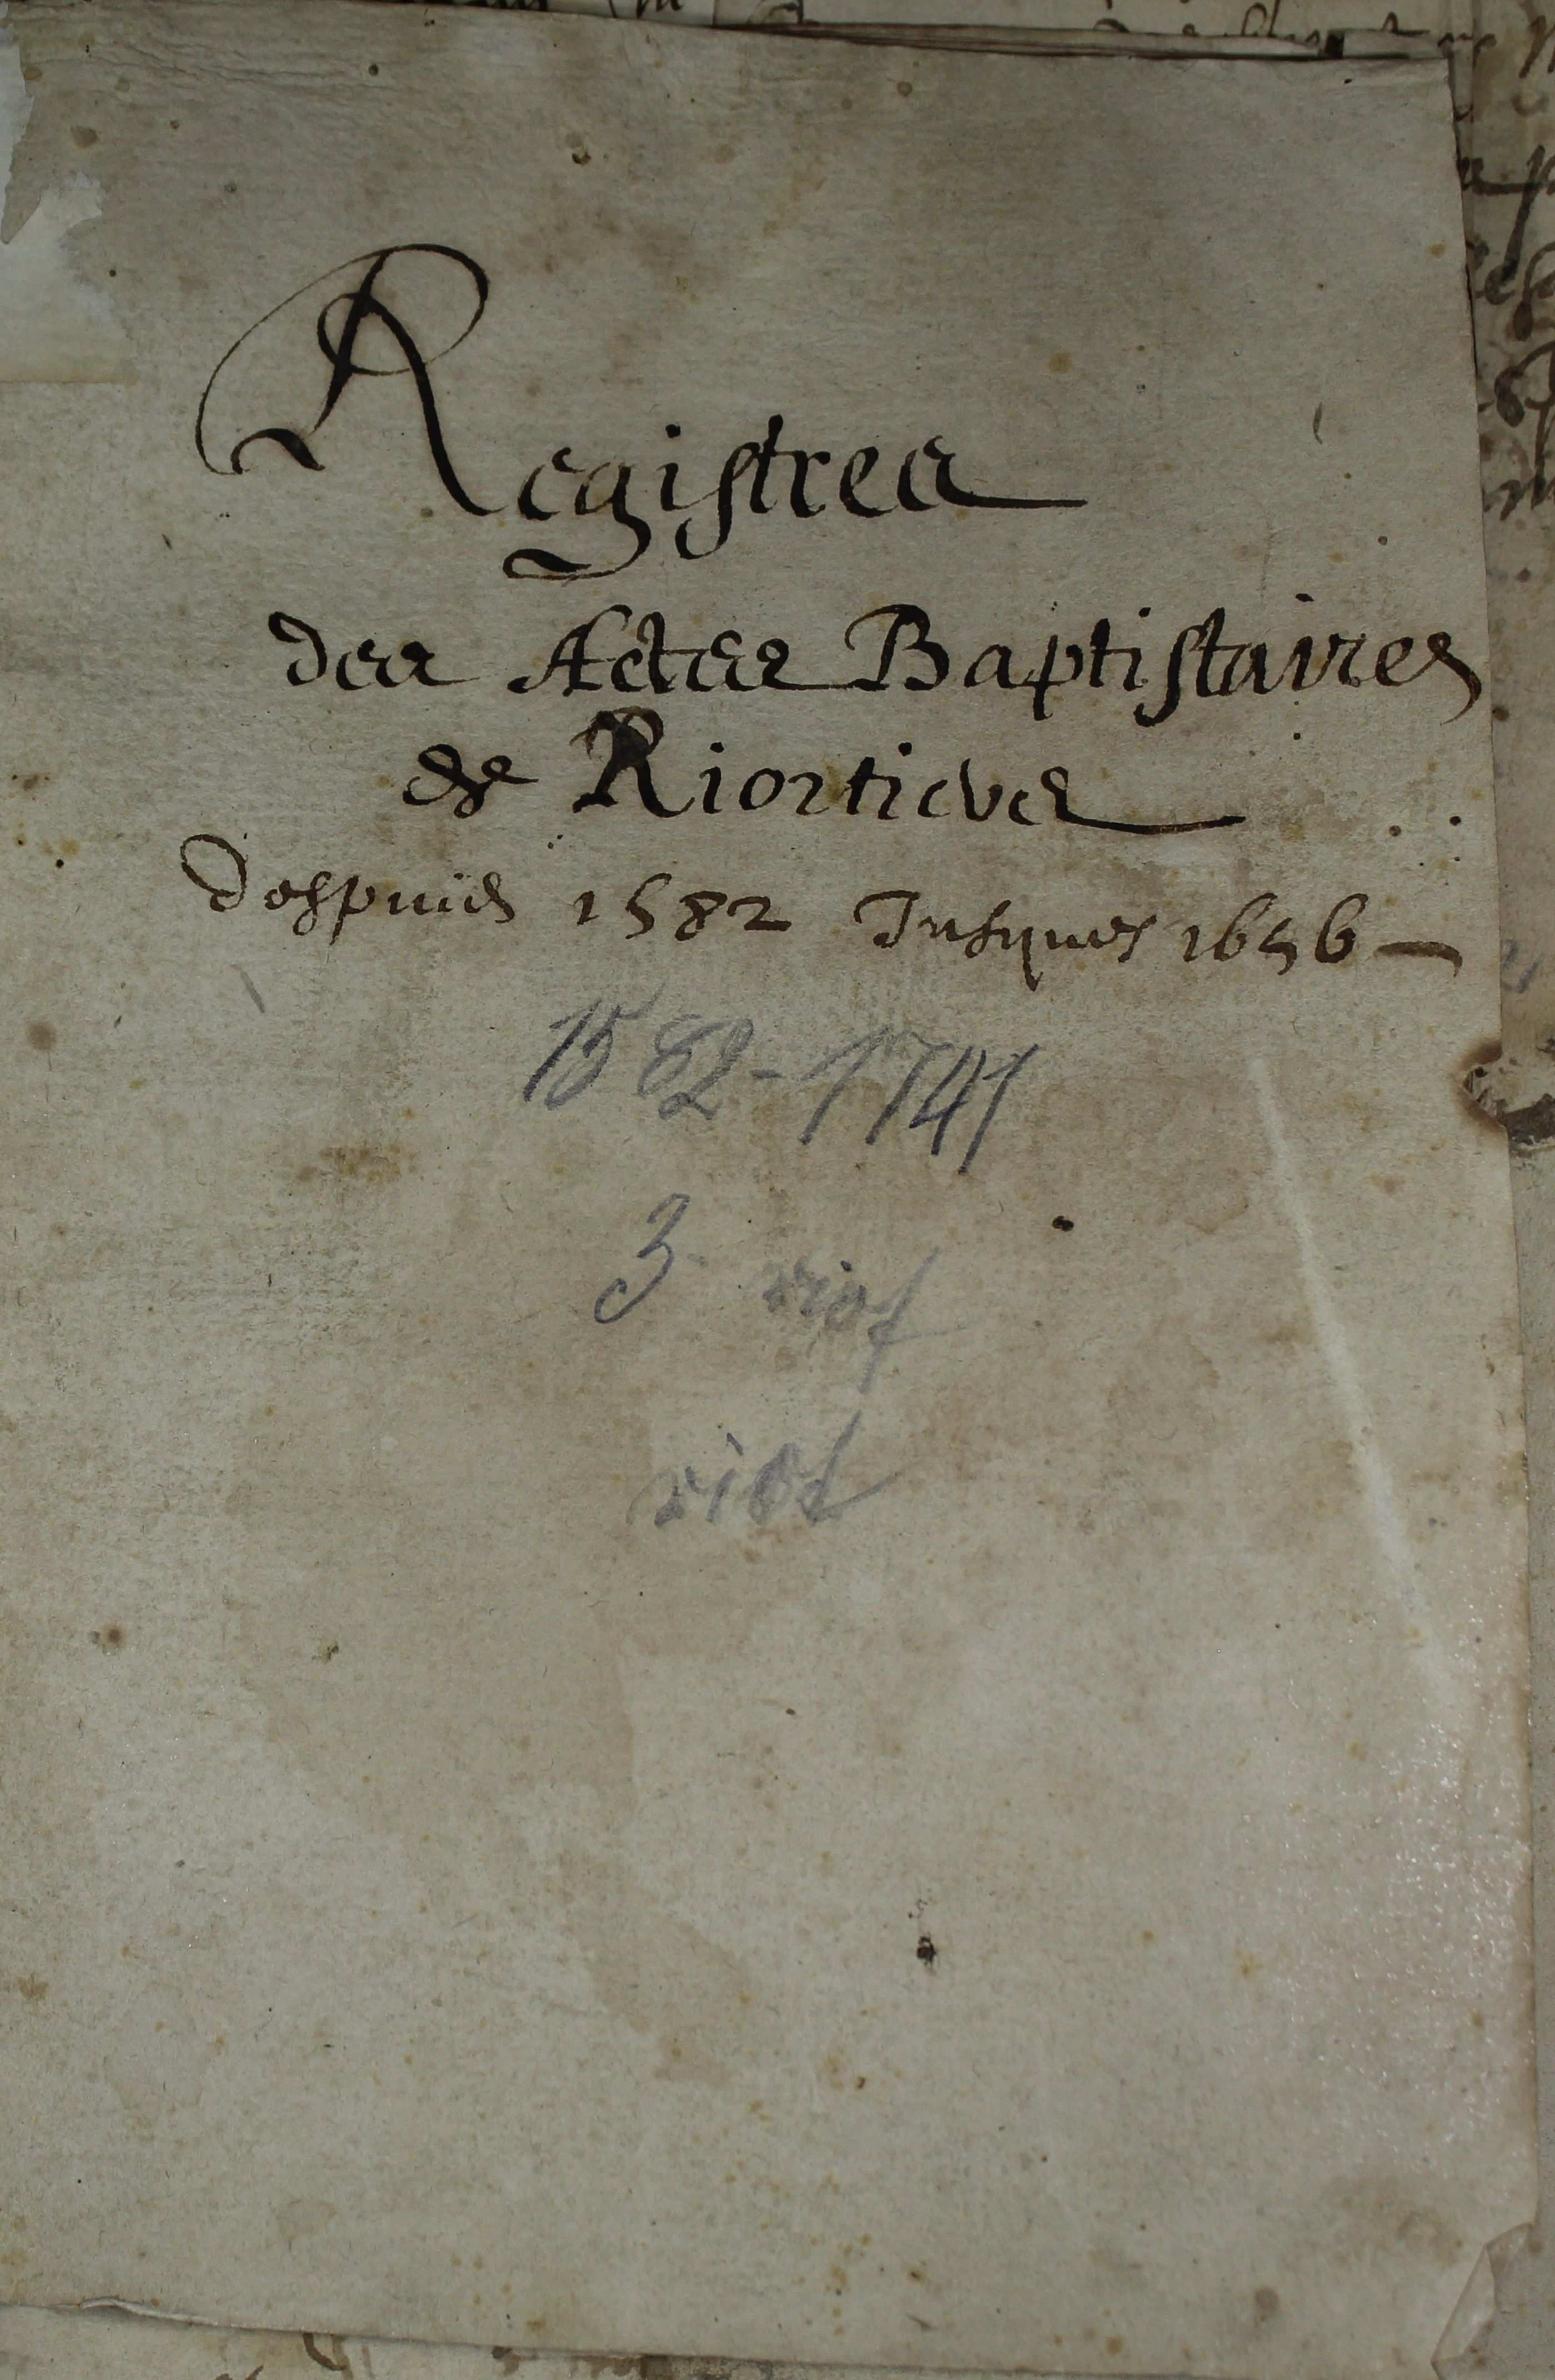 Registres
des Actes Baptistaires
de Riortieres
Despuis 1582 Jusques 1656
1582-1741
3 riot
riot